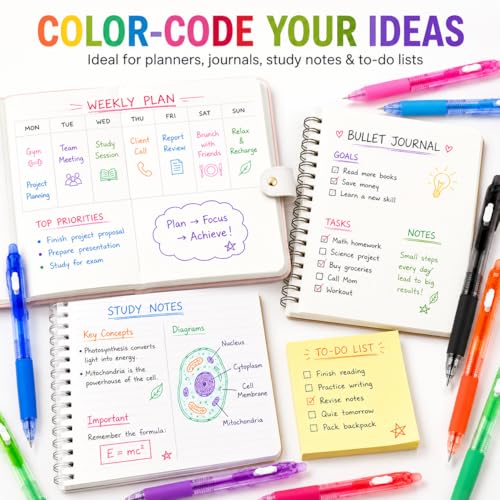 COLOR-CODE YOUR IDEAS
Ideal for planners, journals, study notes & to-do lists
WEEKLY PLAN
MON TUE WED THU FRI SAT SUN
Gym
Team
Meeting
Study
Session
Client
Call
Report
Review
Brunch
with
Friends
Relax
&
Recharge
Project
Planning
TOP PRIORITIES
• Finish project proposal
• Prepare presentation
• Study for exam
Plan → Focus
→ Achieve!
BULLET JOURNAL
GOALS
Read more books
Save money
Learn a new skill
TASKS
Math homework
Science project
Buy groceries
Call Mom
Workout
NOTES
Small steps
every day
lead to big
results!
STUDY NOTES
Key Concepts
• Photosynthesis converts
light into energy.
• Mitochondria is the
powerhouse of the cell.
Important
Remember the formula:
E = mc²
Diagrams
Nucleus
Cytoplasm
Cell
Membrane
Mitochondria
TO-DO LIST
Finish reading
Practice writing
Revise notes
Quiz tomorrow
Pack backpack